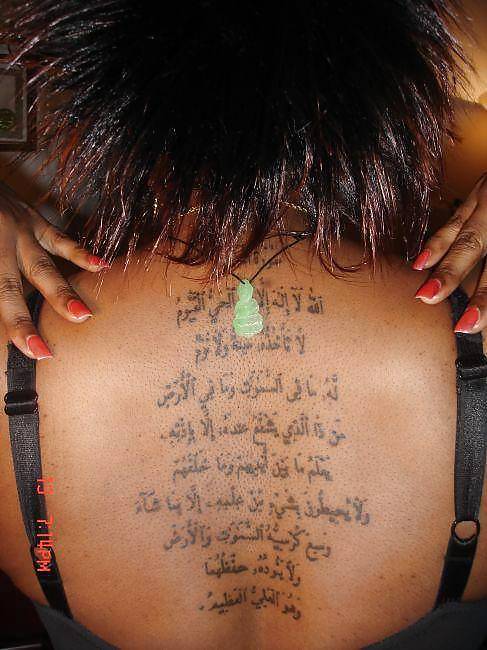 الله لَا إِلَهَ الحَيُّ القَيُّومُ
لَا تَأْخُذُهُ سِنَةٌ وَلَا نَوْمٌ
لَّهُ مَا فِي السَّمَٰوَٰتِ وَمَا فِي الْأَرْضِ
مَن ذَا الَّذِي يَشْفَعُ عِندَهُ إِلَّا بِإِذْنِهِ
يَعْلَمُ مَا بَيْنَ أَيْدِيهِمْ وَمَا خَلْفَهُمْ
وَلَا يُحِيطُونَ بِشَيْءٍ مِّنْ عِلْمِهِ إِلَّا بِمَا شَآءَ
وَسِعَ كُرْسِيُّهُ السَّمَٰوَٰتِ وَالْأَرْضَ
وَلَا يَئُودُهُ حِفْظُهُمَا
وَهُوَ العَلِيُّ العَظِيمُ.